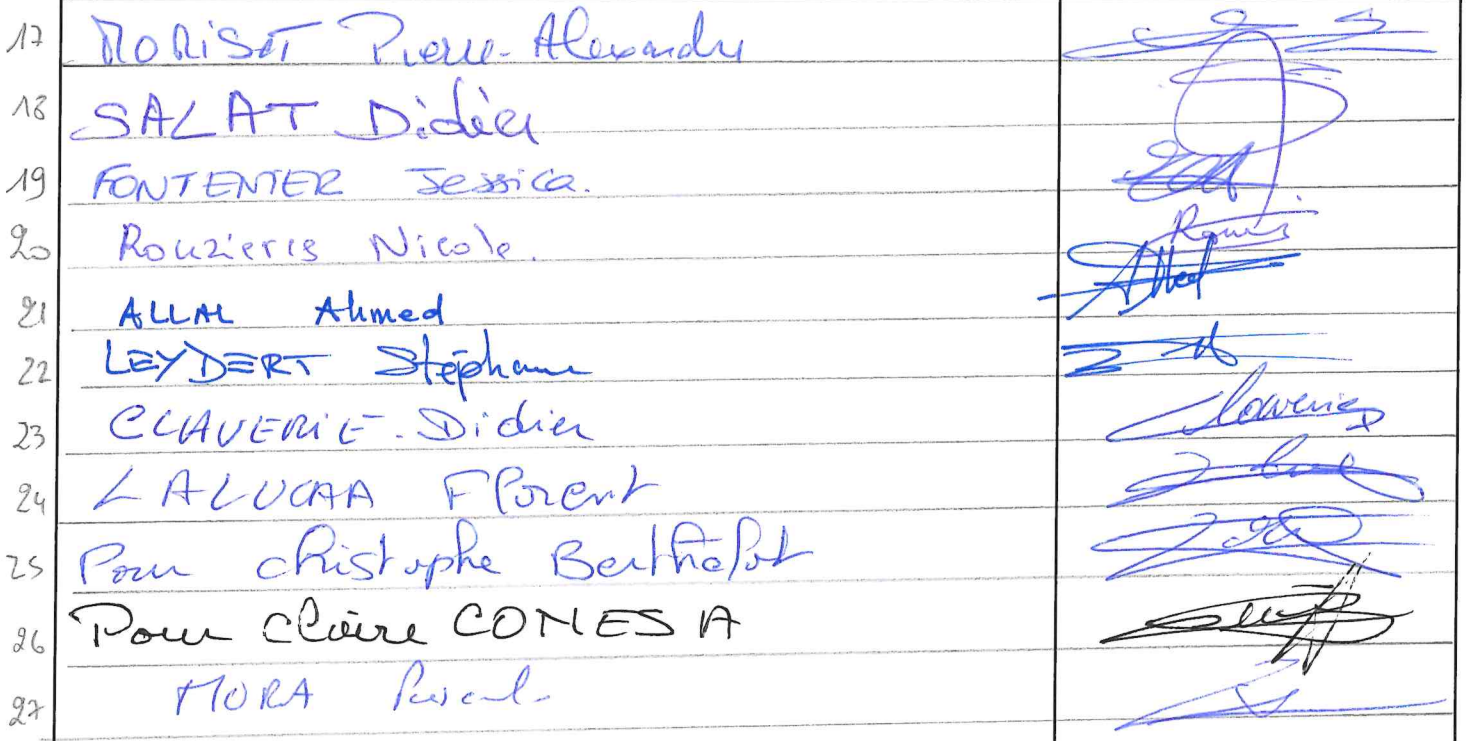 17 MORISOT Pierre-Alexandre
18 SALAT Didier
19 FONTENIER Jessica.
20 Rouzieris Nicole.
21 ALLAL Ahmed
22 LEYDERT Stéphane
23 CLAVERIE. Didier
24 LALUCAA Florent
25 Pour christophe Berthelot
26 Pour Claire COMESA
27 MORA Pascal